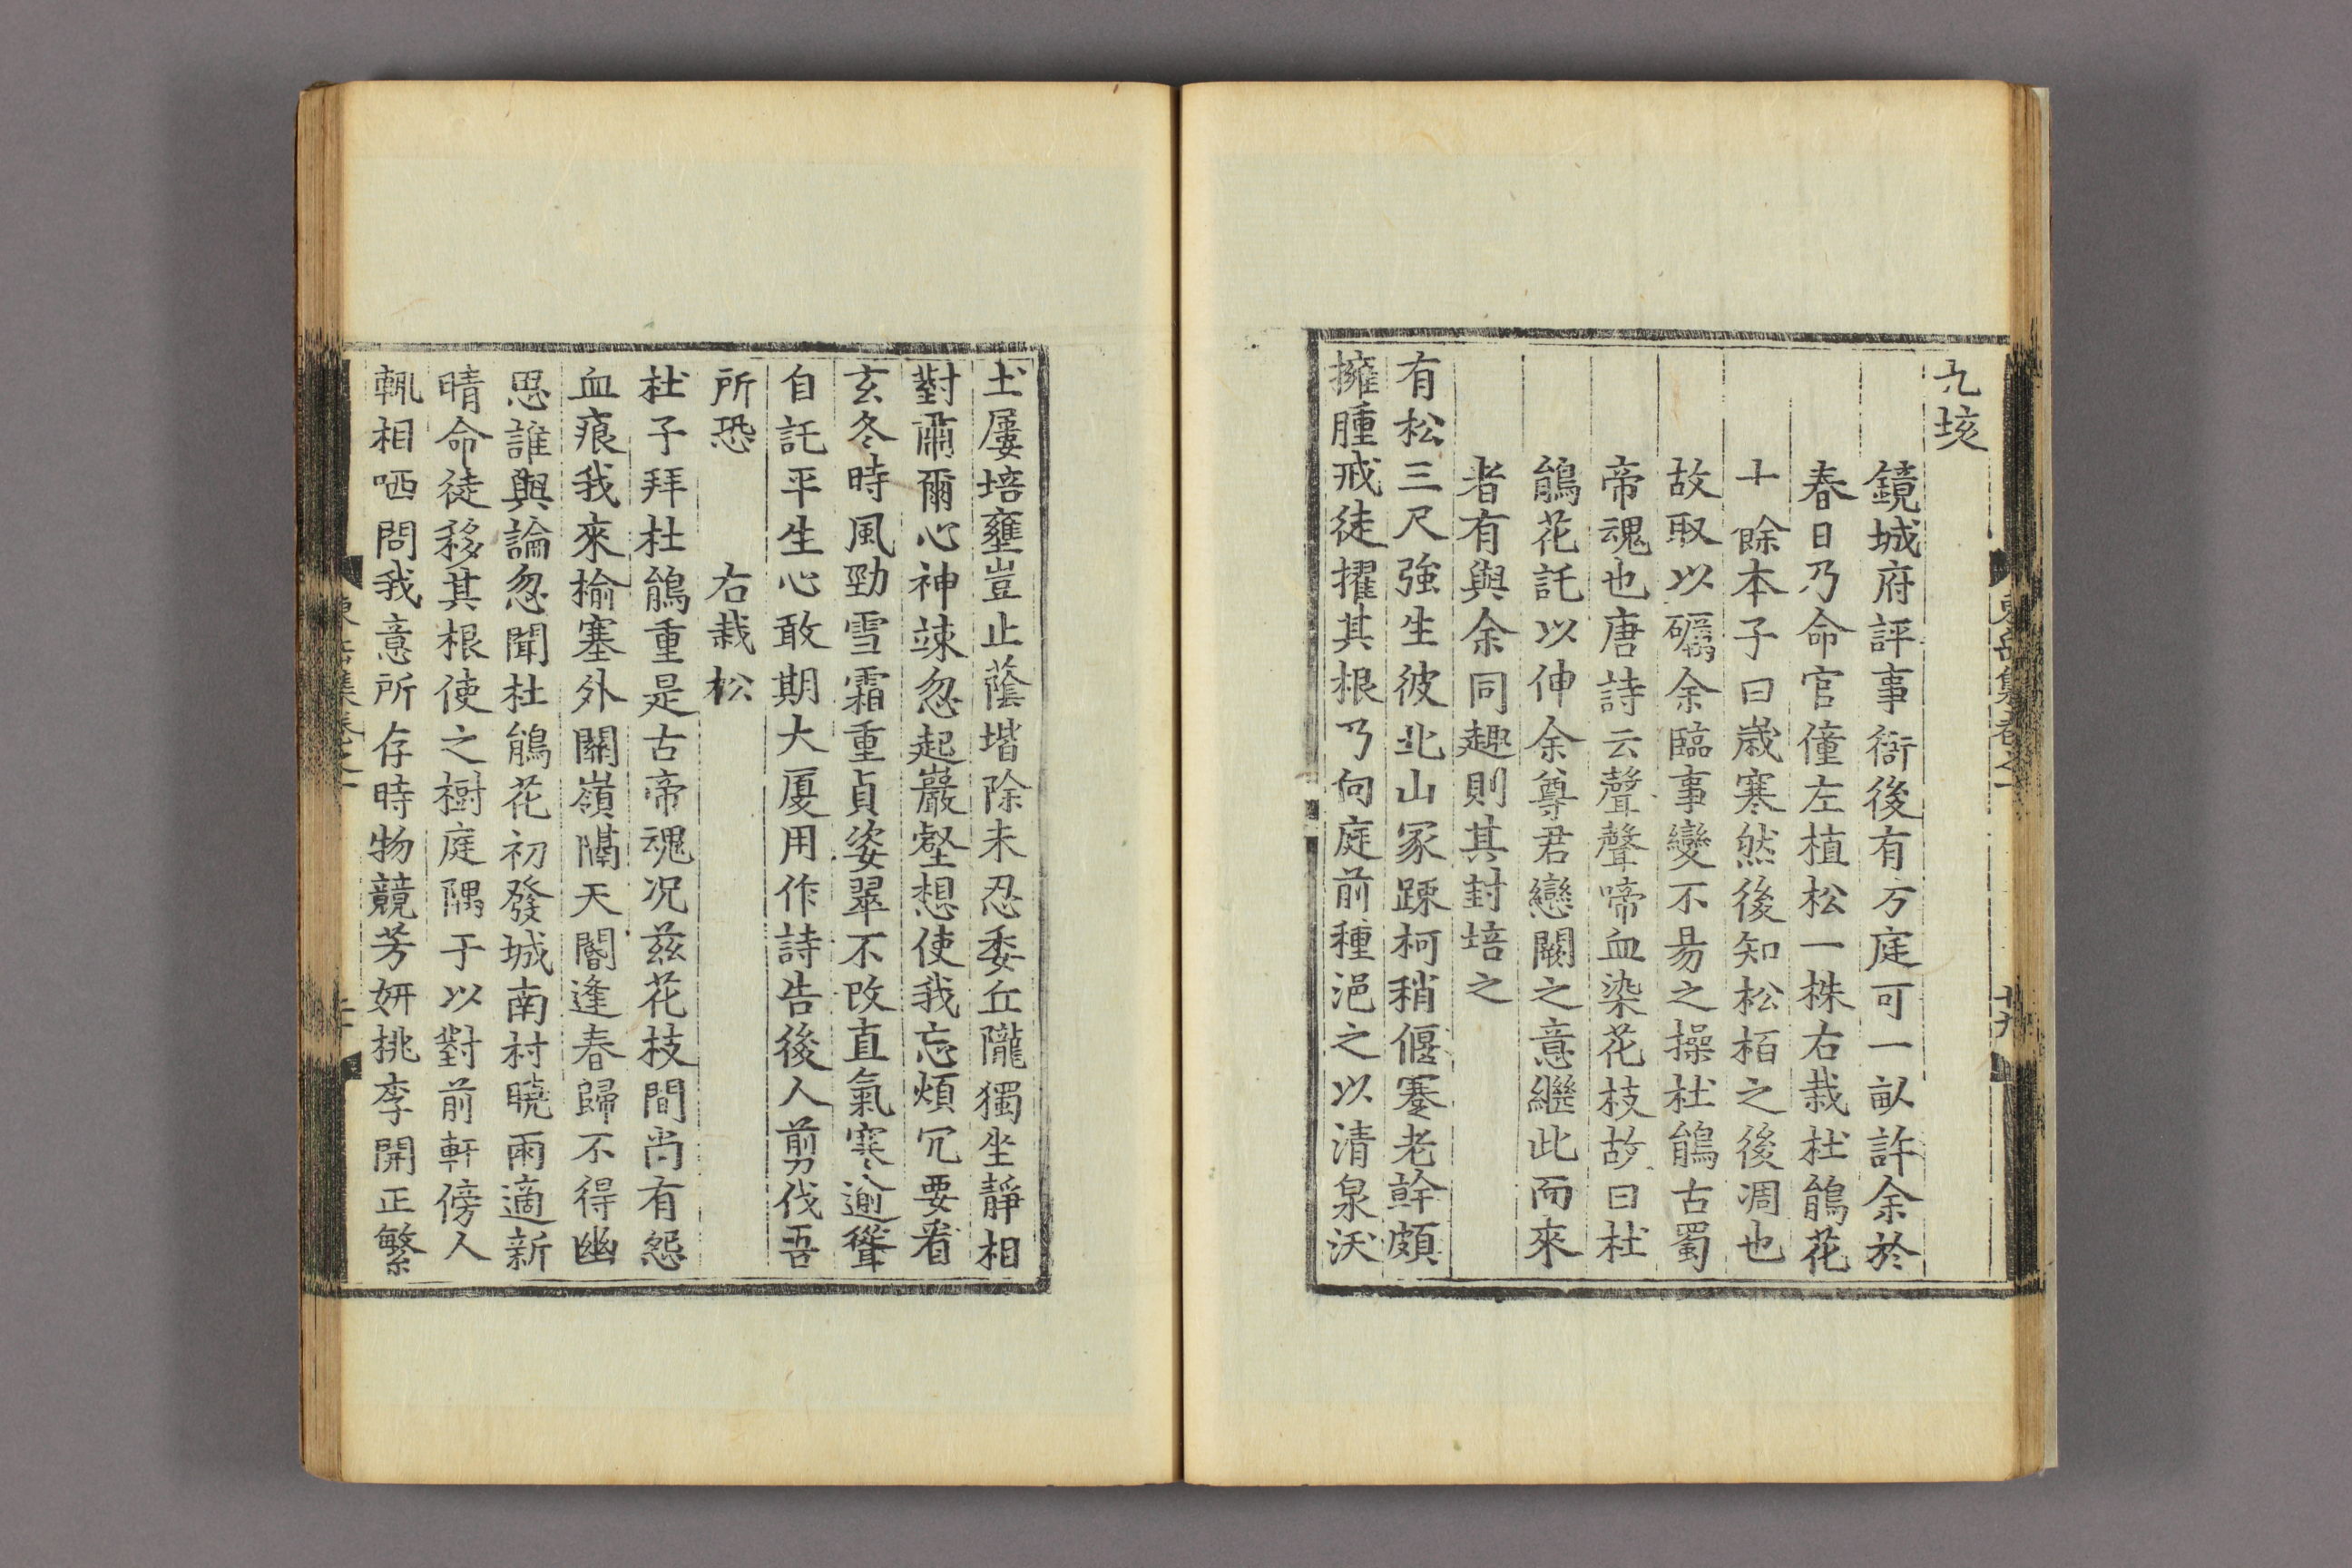 九垓
鏡城府評事衙後有方庭可一畒許余於
春日乃命官僮左植松一株右栽杜鵑花
十餘本子曰歲寒然後知松栢之後凋也
故取以礪余臨事變不易之操杜鵑古蜀
帝魂也唐詩云聲聲啼血染花枝故曰杜
鵑花託以伸余尊君戀闕之意繼此而來
者有與余同趣則其封培之
有松三尺強生彼北山冢踈柯稍偃蹇老幹頗
擁腫戒徒擢其根乃向庭前種浥之以清泉沃
土屢培壅豈止蔭堦除未忍委丘隴獨坐靜相
對肅爾心神竦忽起巖壑想使我忘煩冗要看
玄冬時風勁雪霜重貞姿翠不改直氣寒逾聳
自託平生心敢期大厦用作詩告後人剪伐吾
所恐
右栽松
杜子拜杜鵑重是古帝魂况茲花枝間尚有怨
血痕我來榆塞外關嶺隔天閽逢春歸不得幽
思誰與論忽聞杜鵑花初發城南村曉雨適新
晴命徒移其根使之樹庭隅于以對前軒傍人
輒相哂問我意所存時物競芳妍桃李開正繁